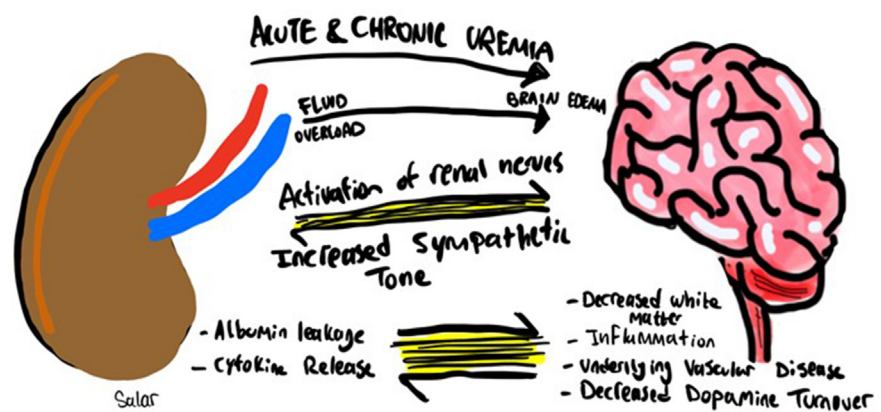 ACUTE & CHRONIC UREMIA
FLUID
OVERLOAD
BRAIN EDEMA
Activation of renal nerves
Increased Sympathetic
Tone
- Albumin leakage
- Cytokine Release
- Decreased white
matter
- Inflammation
- Underlying Vascular Disease
- Decreased Dopamine Turnover
Salar